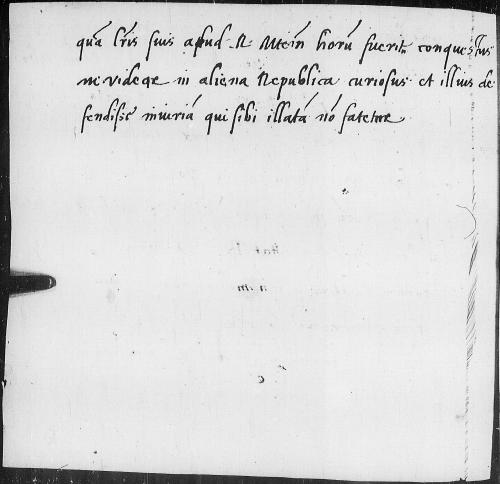 quã lr̃is suis apud R Mtem̃ horũ fuerit conquestus
ni videret in aliena Republica curiosus et illius de
fendisse iniuriã qui sibi illatã nõ fatetur